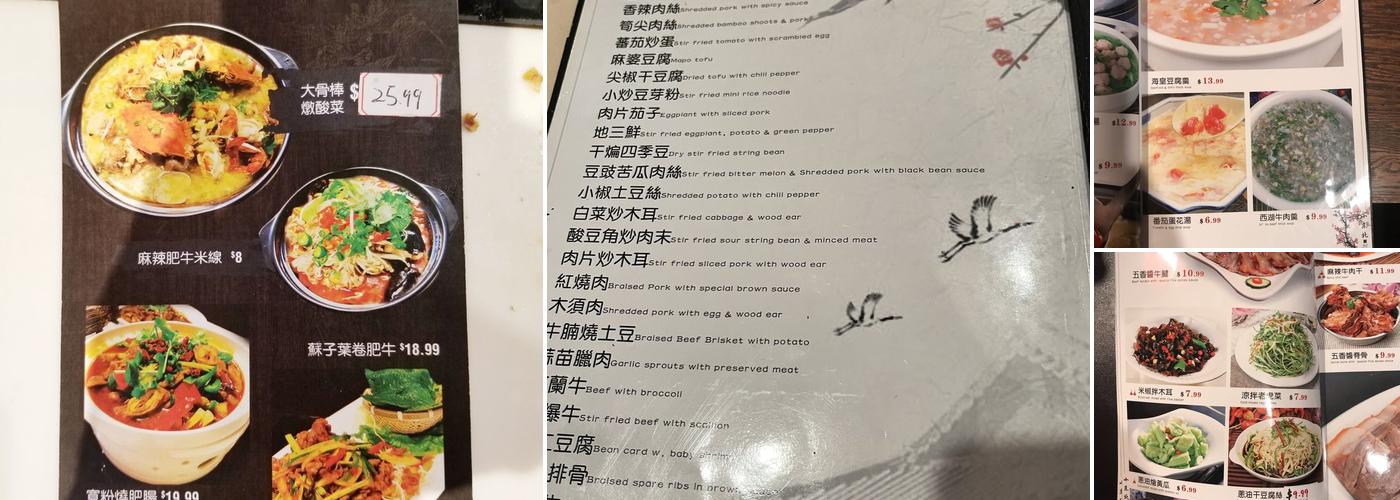 大骨棒 $25.99
燉酸菜
麻辣肥牛米線 $8
蘇子葉卷肥牛 $18.99
寬粉燒肥腸 $19.99
香辣肉絲Shredded pork with spicy sauce
筍尖肉絲Shredded bamboo shoots & pork
蕃茄炒蛋Stir fried tomato with scrambled egg
麻婆豆腐Mapo tofu
尖椒干豆腐Dried tofu with chili pepper
小炒豆芽粉Stir fried mini rice noodle
肉片茄子Eggplant with sliced pork
地三鮮Stir fried eggplant, potato & green pepper
干煸四季豆Dry stir fried string bean
豆豉苦瓜肉絲Stir fried bitter melon & Shredded pork with black bean sauce
小椒土豆絲Shredded potato with chili pepper
白菜炒木耳Stir fried cabbage & wood ear
酸豆角炒肉末Stir fried sour string bean & minced meat
肉片炒木耳Stir fried sliced pork with wood ear
紅燒肉Braised Pork with special brown sauce
木須肉Shredded pork with egg & wood ear
牛腩燒土豆Braised Beef Brisket with potato
蒜苗臘肉Garlic sprouts with preserved meat
蘭牛Beef with broccoli
爆牛Stir fried beef with scallion
豆腐Bean card w. baby shrim
排骨Braised spare ribs in brown
海皇豆腐羹 $13.99
$12.99
$9.99
番茄蛋花湯 $6.99
西湖牛肉羹 $9.99
五香醬牛腱 $10.99
麻辣牛肉干 $11.99
五香醬脊骨 $9.99
米椒拌木耳 $7.99
涼拌老虎菜 $7.99
蔥油熗黃瓜 $6.99
蔥油干豆腐絲 $9.99